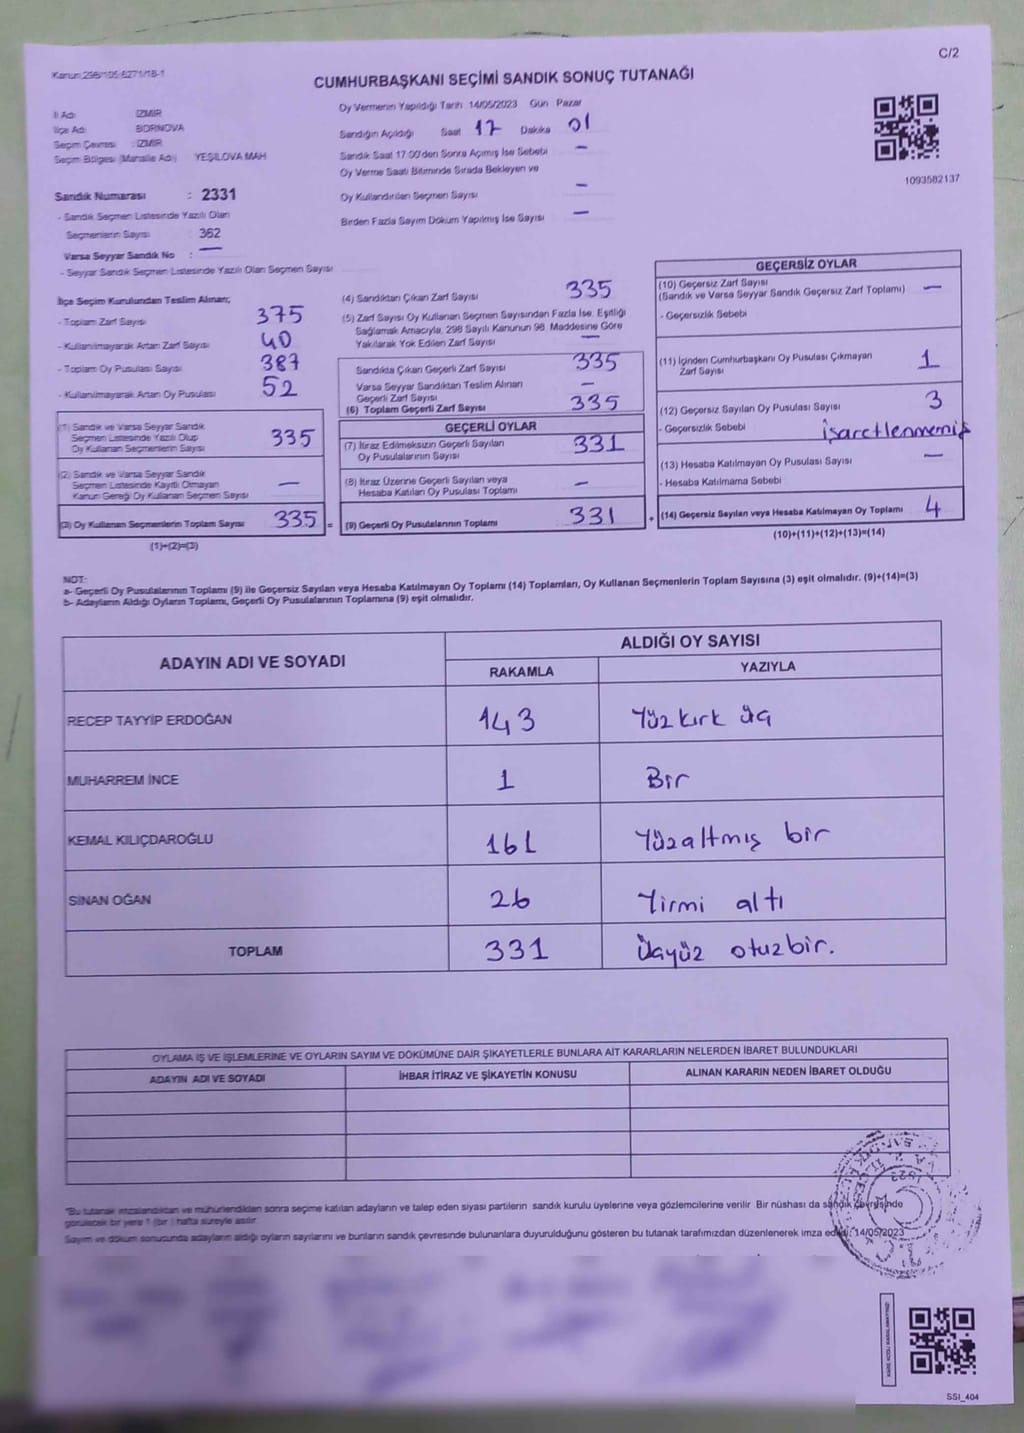 Kanun:298/105-6271/18-1
C/2
CUMHURBAŞKANI SEÇİMİ SANDIK SONUÇ TUTANAĞI
İl Adı : İZMİR
İlçe Adı : BORNOVA
Seçim Çevresi : İZMİR
Seçim Bölgesi (Mahalle Adı) YEŞİLOVA MAH
Sandık Numarası : 2331
- Sandık Seçmen Listesinde Yazılı Olan
Seçmenlerin Sayısı 362
Varsa Seyyar Sandık No : —
- Seyyar Sandık Seçmen Listesinde Yazılı Olan Seçmen Sayısı
Oy Vermenin Yapıldığı Tarih 14/05/2023 Gün Pazar
Sandığın Açıldığı Saat 17 Dakika 01
Sandık Saat 17.00'den Sonra Açılmış İse Sebebi —
Oy Verme Saati Bitiminde Sırada Bekleyen ve
Oy Kullandırılan Seçmen Sayısı —
Birden Fazla Sayım Döküm Yapılmış İse Sayısı —
1093582137
İlçe Seçim Kurulundan Teslim Alınan;
- Toplam Zarf Sayısı 375
- Kullanılmayarak Artan Zarf Sayısı 40
- Toplam Oy Pusulası Sayısı 387
- Kullanılmayarak Artan Oy Pusulası 52
(1) Sandık ve Varsa Seyyar Sandık
Seçmen Listesinde Yazılı Olup
Oy Kullanan Seçmenlerin Sayısı 335
(2) Sandık ve Varsa Seyyar Sandık
Seçmen Listesinde Kayıtlı Olmayan
Kanun Gereği Oy Kullanan Seçmen Sayısı —
(3) Oy Kullanan Seçmenlerin Toplam Sayısı 335 =
(1)+(2)=(3)
(4) Sandıktan Çıkan Zarf Sayısı 335
(5) Zarf Sayısı Oy Kullanan Seçmen Sayısından Fazla İse, Eşitliği
Sağlamak Amacıyla, 298 Sayılı Kanunun 98. Maddesine Göre
Yakılarak Yok Edilen Zarf Sayısı —
Sandıkta Çıkan Geçerli Zarf Sayısı 335
Varsa Seyyar Sandıktan Teslim Alınan
Geçerli Zarf Sayısı —
(6) Toplam Geçerli Zarf Sayısı 335
GEÇERLİ OYLAR
(7) İtiraz Edilmeksizin Geçerli Sayılan
Oy Pusulalarının Sayısı 331
(8) İtiraz Üzerine Geçerli Sayılan veya
Hesaba Katılan Oy Pusulası Toplamı —
(9) Geçerli Oy Pusulalarının Toplamı 331 +
GEÇERSİZ OYLAR
(10) Geçersiz Zarf Sayısı
(Sandık ve Varsa Seyyar Sandık Geçersiz Zarf Toplamı) —
- Geçersizlik Sebebi
(11) İçinden Cumhurbaşkanı Oy Pusulası Çıkmayan
Zarf Sayısı 1
(12) Geçersiz Sayılan Oy Pusulası Sayısı 3
- Geçersizlik Sebebi işaretlenmemiş
(13) Hesaba Katılmayan Oy Pusulası Sayısı —
- Hesaba Katılmama Sebebi
(14) Geçersiz Sayılan veya Hesaba Katılmayan Oy Toplamı 4
(10)+(11)+(12)+(13)=(14)
NOT:
a- Geçerli Oy Pusulalarının Toplamı (9) ile Geçersiz Sayılan veya Hesaba Katılmayan Oy Toplamı (14) Toplamları, Oy Kullanan Seçmenlerin Toplam Sayısına (3) eşit olmalıdır. (9)+(14)=(3)
b- Adayların Aldığı Oyların Toplamı, Geçerli Oy Pusulalarının Toplamına (9) eşit olmalıdır.
ADAYIN ADI VE SOYADI
ALDIĞI OY SAYISI
RAKAMLA YAZIYLA
RECEP TAYYİP ERDOĞAN 143 Yüzkırk üç
MUHARREM İNCE 1 Bir
KEMAL KILIÇDAROĞLU 161 Yüzaltmış bir
SİNAN OĞAN 26 Yirmi altı
TOPLAM 331 Üçyüz otuzbir.
OYLAMA İŞ VE İŞLEMLERİNE VE OYLARIN SAYIM VE DÖKÜMÜNE DAİR ŞİKAYETLERLE BUNLARA AİT KARARLARIN NELERDEN İBARET BULUNDUKLARI
ADAYIN ADI VE SOYADI İHBAR İTİRAZ VE ŞİKAYETİN KONUSU ALINAN KARARIN NEDEN İBARET OLDUĞU
"Bu tutanak imzalandıktan ve mühürlendikten sonra seçime katılan adayların ve talep eden siyasi partilerin sandık kurulu üyelerine veya gözlemcilerine verilir. Bir nüshası da sandık çevresinde
görülecek bir yere 1 (bir) hafta süreyle asılır.
Sayım ve döküm sonucunda adayların aldığı oyların sayılarını ve bunların sandık çevresinde bulunanlara duyurulduğunu gösteren bu tutanak tarafımızdan düzenlenerek imza edildi. 14/05/2023
SSI_404